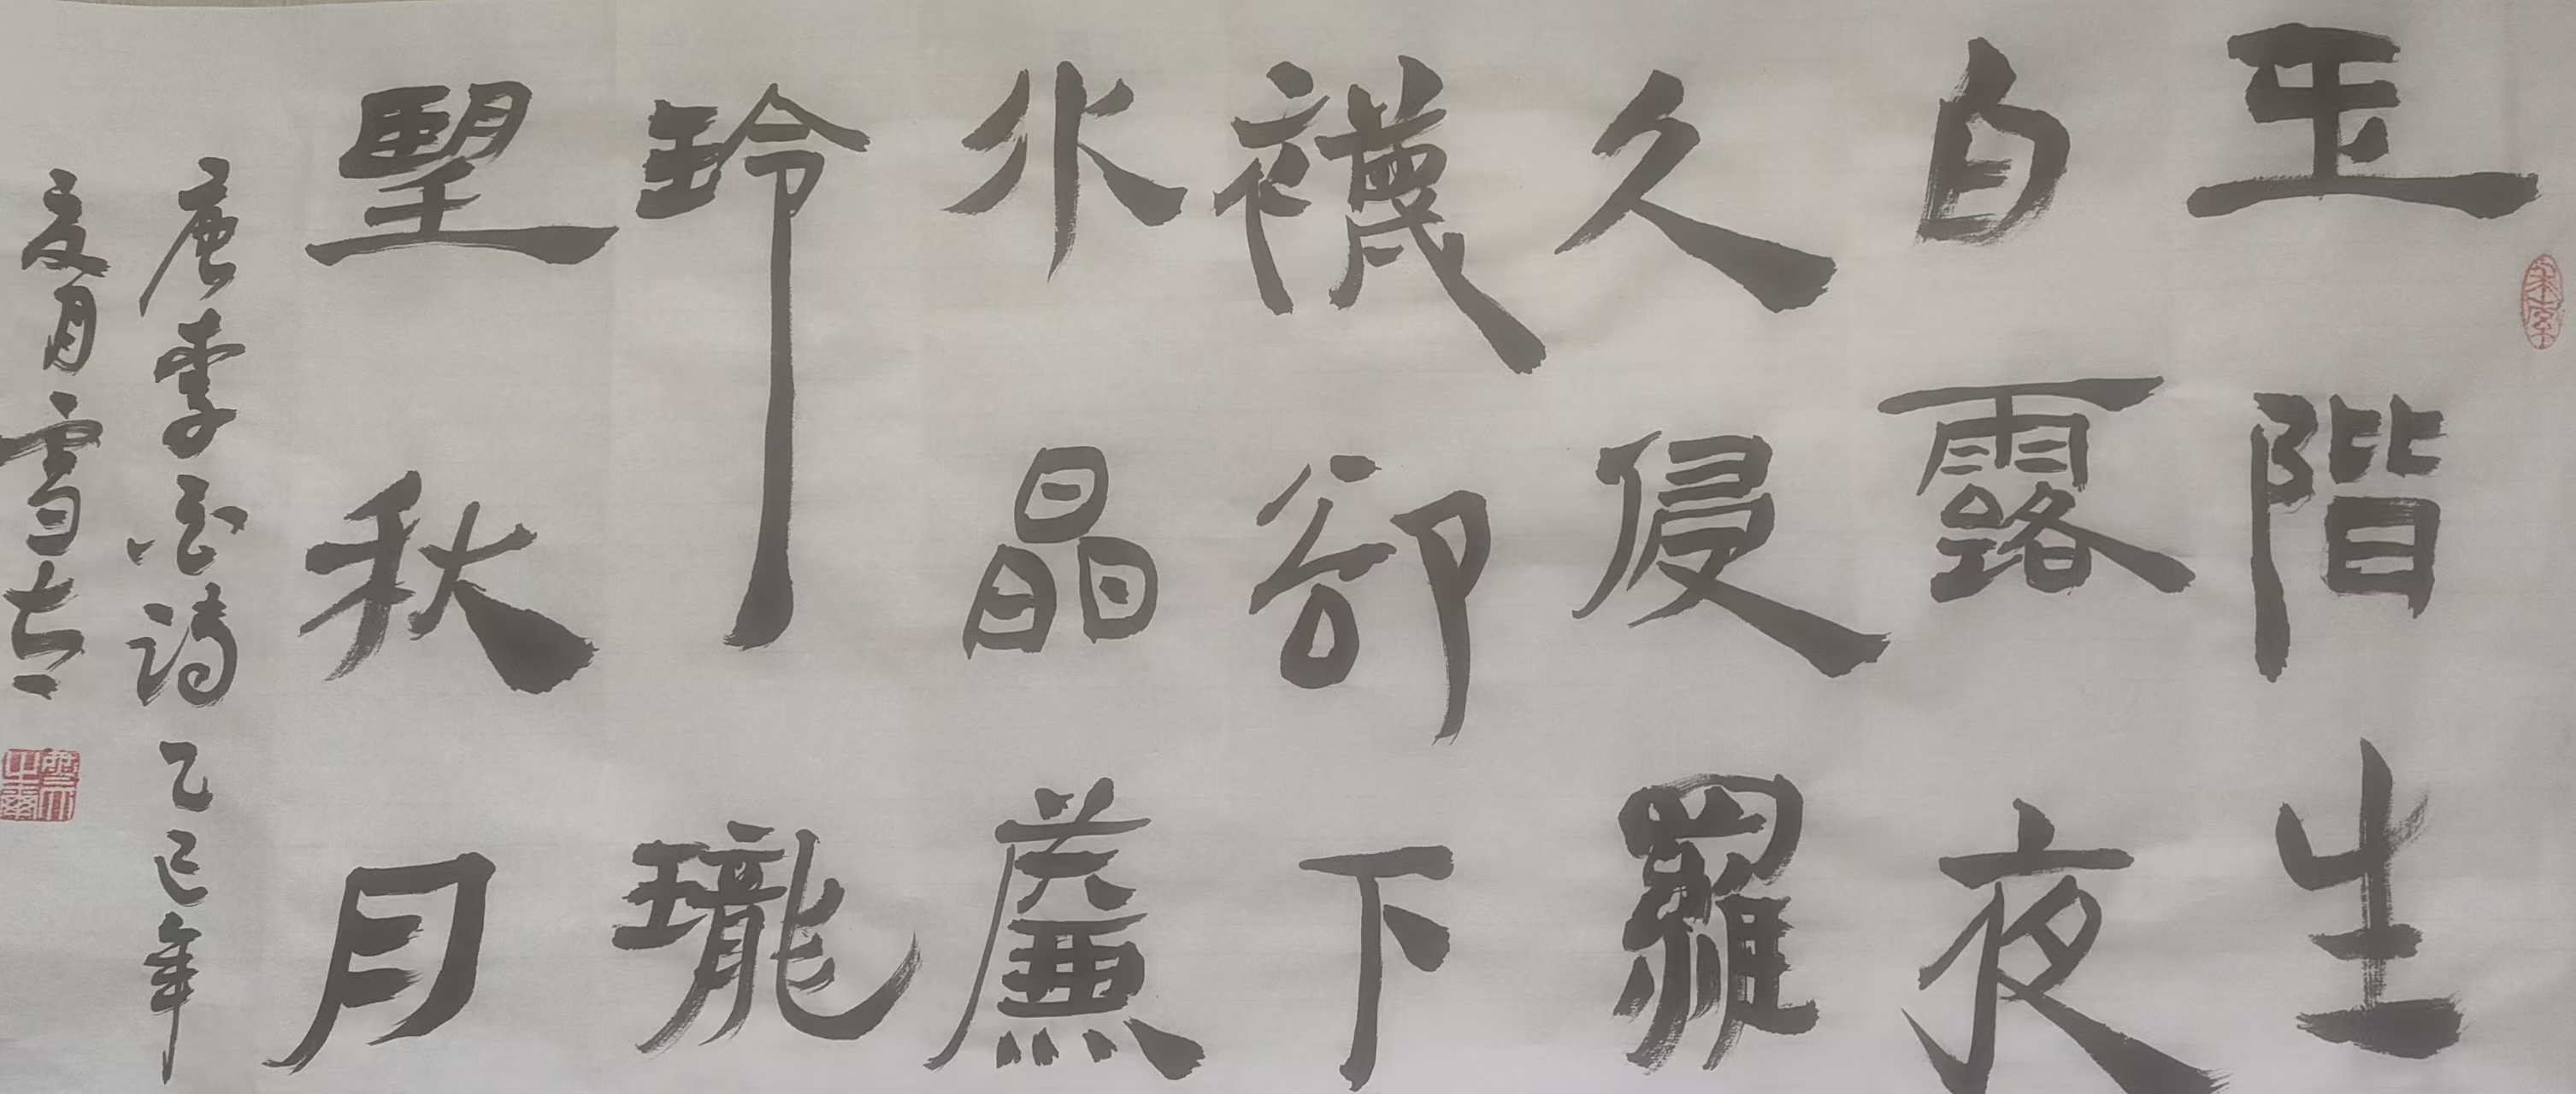 玉階生
白露夜
久侵羅
襪卻下
水晶簾
玲瓏
望秋月
唐李白詩乙巳年
夏月雪古